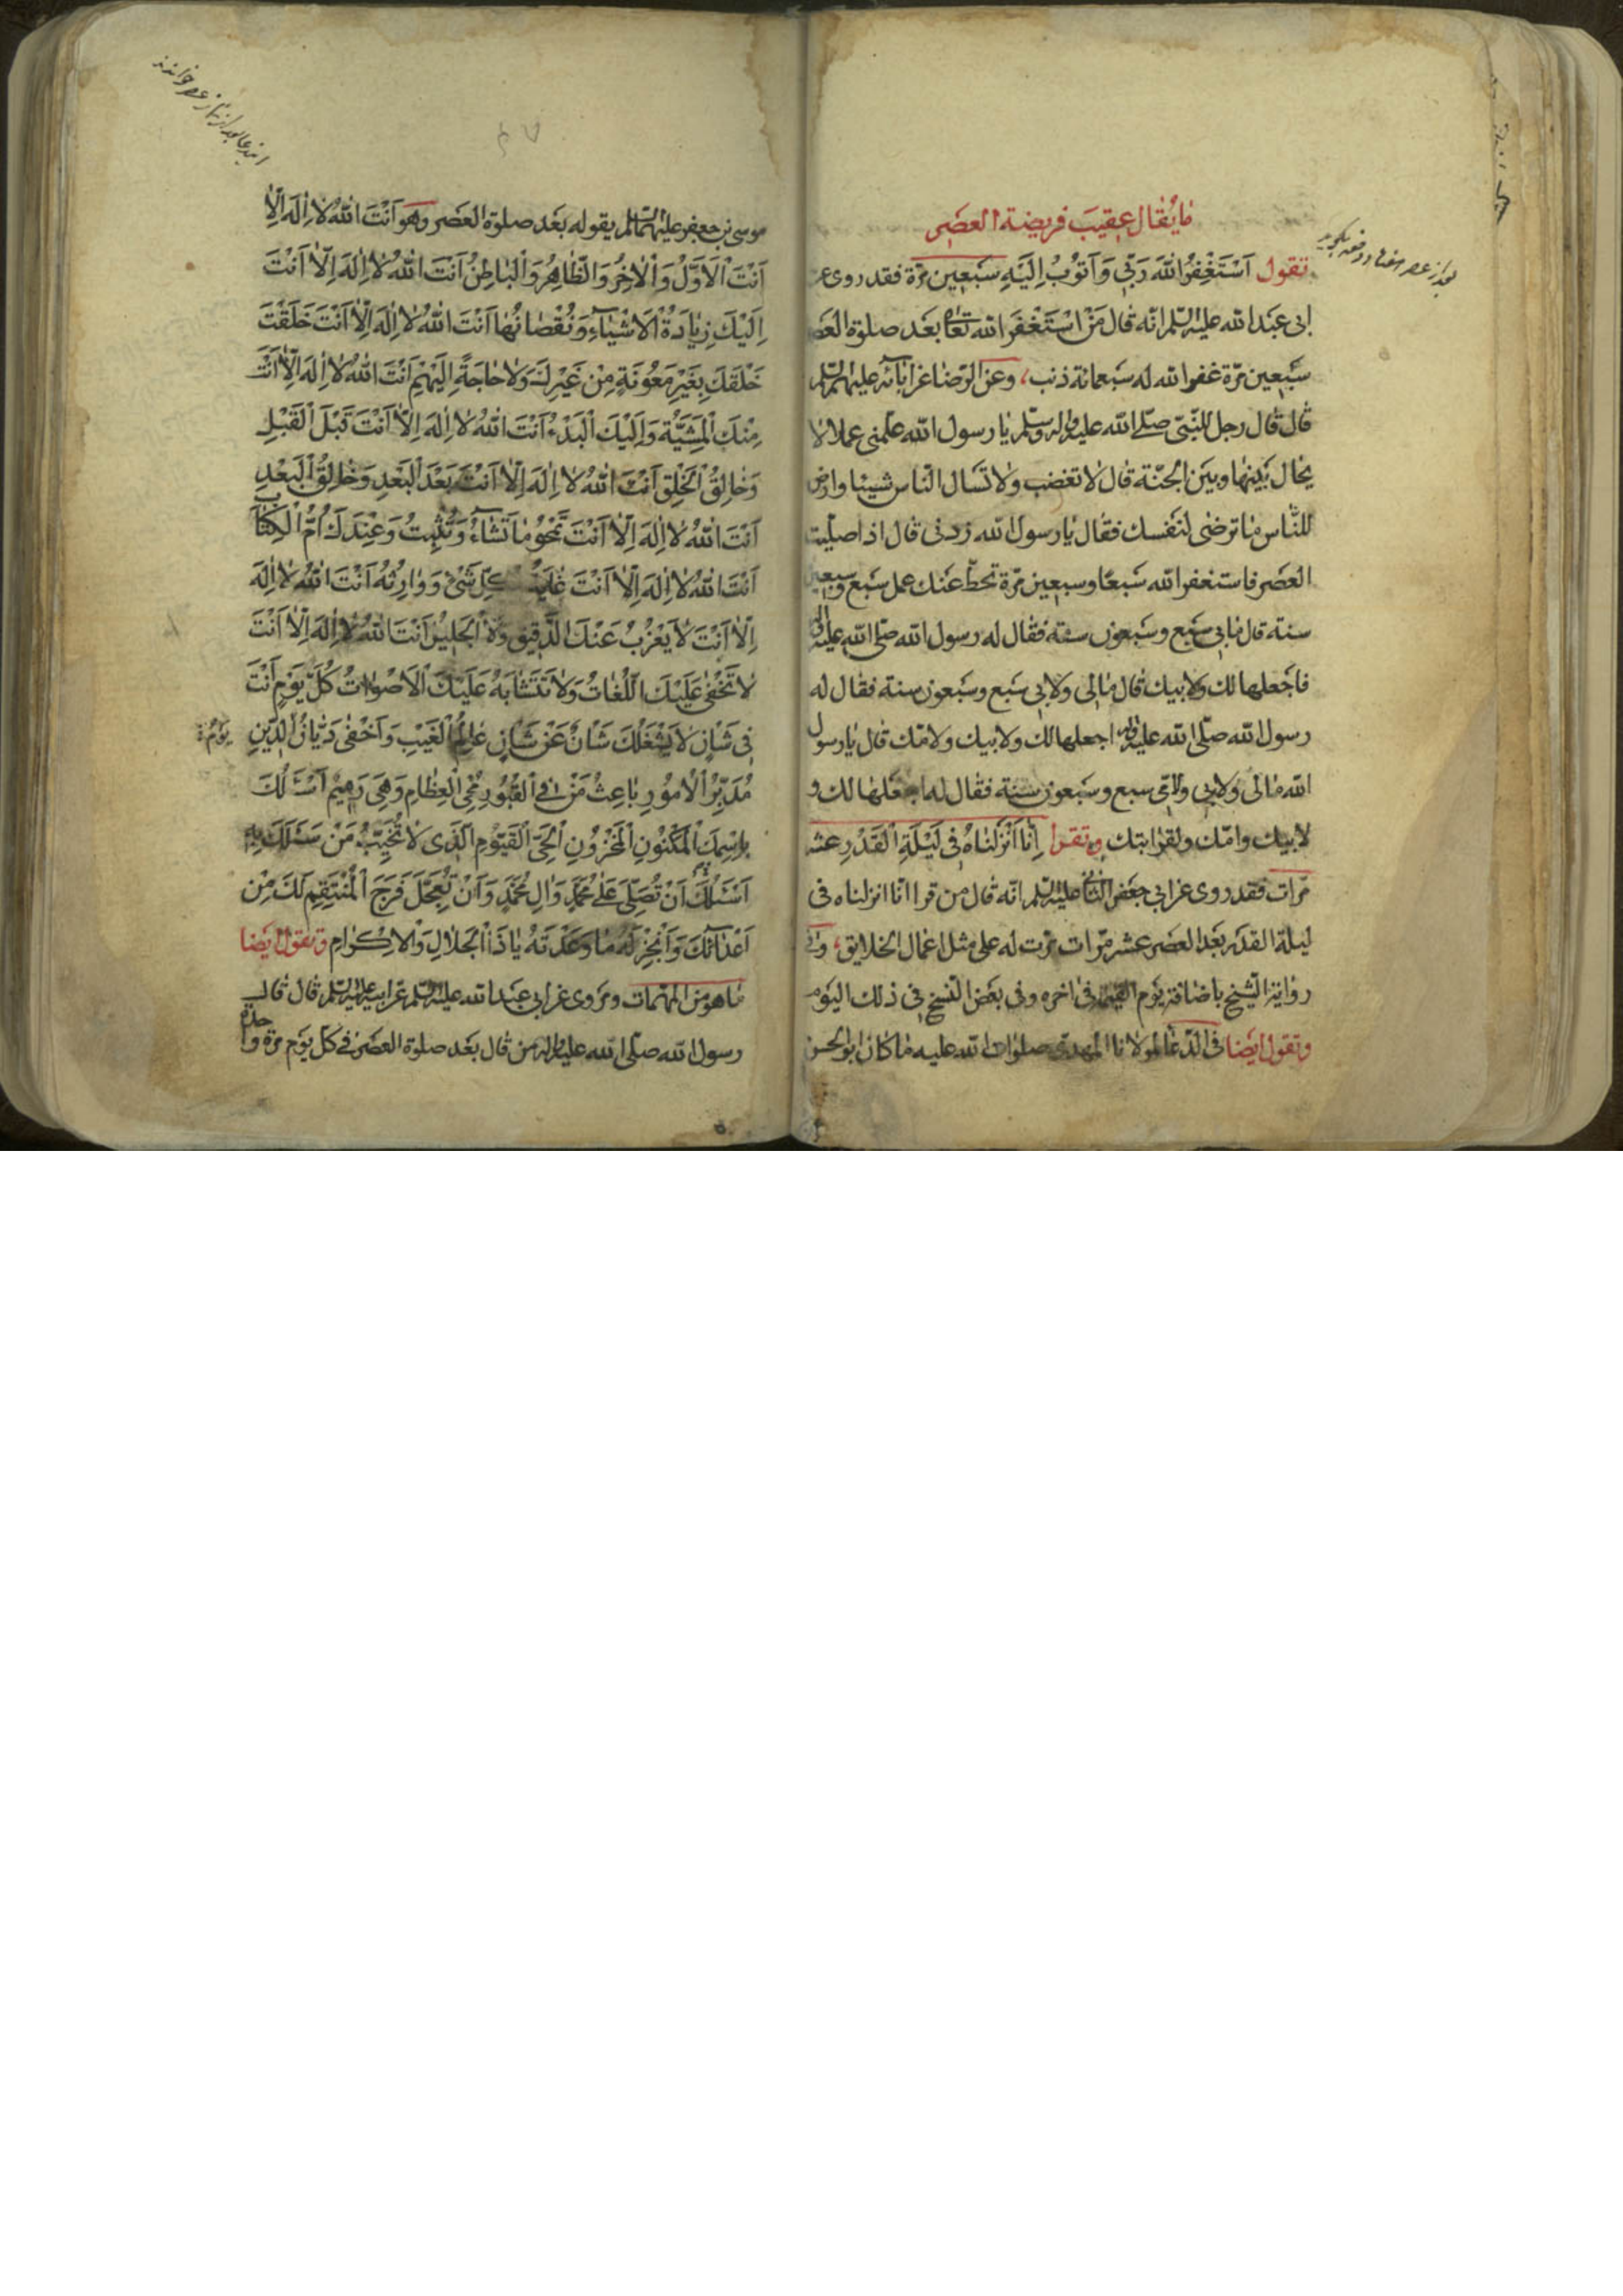 ما يقال عقيب فريضة العصر
تقول اَسْتَغْفِرُ اللّٰهَ رَبّي وَاَتُوبُ اِلَيْهِ سَبعين مرّة فقد روى عن
ابى عبد الله عليه السلم انّه قال من استغفر الله تعالى بعد صلوة العصر
سبعين مرّة غفر الله له سبعمائة ذنب، وعن الرّضا عن ابائه عليهم السلم
قال قال رجل للنّبىّ صلّى الله عليه واله وسلّم يا رسول الله علّمنى عملا لا
يحال بينها وبين الجنّة قال لا تغضب ولا تسال النّاس شيئا وارض
للنّاس ما ترضى لنفسك فقال يا رسول الله زدنى قال اذا صليّت
العصر فاستغفر الله سبعًا وسبعين مرّة تحطّ عنك عمل سبع وسبعين
سنة قال ما بى سبع وسبعون سنة فقال له رسول الله صلّى الله عليه واله
فاجعلها لك ولابيك قال مالى ولابى سبع وسبعون سنة فقال له
رسول الله صلّى الله عليه واله اجعلها لك ولابيك ولامّك قال يا رسول
الله مالى ولابى ولامّى سبع وسبعون سنة فقال له اجعلها لك و
لابيك وامّك ولقرابتك وتقرا اِنّا اَنْزَلْناهُ فى لَيْلَةِ الْقَدْرِ عشر
مرّات فقد روى عن ابى جعفر الثانى عليه السلم انّه قال من قرا انّا انزلناه فى
ليلة القدر بعد العصر عشر مرّات مرّت له على مثل اعمال الخلايق، وفى
رواية الشّيخ باضافة يوم القيمة فى اخره وفى بعض النّسخ فى ذلك اليوم
وتقول ايضا فى الدّعا لمولانا المهدى صلوات الله عليه ما كان ابو الحسن
بعد از عصر هفتاد دفعه بگويد
موسى بن جعفر عليهما السلم يقوله بعد صلوة العصر وهو اَنْتَ اللّٰهُ لا اِلٰهَ اِلّا
اَنْتَ الْاَوَّلُ وَالْاٰخِرُ وَالظّاهِرُ وَالْباطِنُ اَنْتَ اللّٰهُ لا اِلٰهَ اِلّا اَنْتَ
اِلَيْكَ زِيادَةُ الْاَشْياءِ وَنُقْصانُها اَنْتَ اللّٰهُ لا اِلٰهَ اِلّا اَنْتَ خَلَقْتَ
خَلْقَكَ بِغَيْرِ مَعُونَةٍ مِنْ غَيْرِكَ وَلا حاجَةٍ اِلَيْهِمْ اَنْتَ اللّٰهُ لا اِلٰهَ اِلّا اَنْتَ
مِنْكَ الْمَشِيَّةُ وَاِلَيْكَ الْبَدْءُ اَنْتَ اللّٰهُ لا اِلٰهَ اِلّا اَنْتَ قَبْلَ الْقَبْلِ
وَخالِقُ الْخَلْقِ اَنْتَ اللّٰهُ لا اِلٰهَ اِلّا اَنْتَ بَعْدَ الْبَعْدِ وَخالِقُ الْبَعْدِ
اَنْتَ اللّٰهُ لا اِلٰهَ اِلّا اَنْتَ تَمْحُو ما تَشاءُ وَتُثْبِتُ وَعِنْدَكَ اُمُّ الْكِتابِ
اَنْتَ اللّٰهُ لا اِلٰهَ اِلّا اَنْتَ غايَةُ كُلِّ شَيْءٍ وَوارِثُهُ اَنْتَ اللّٰهُ لا اِلٰهَ
اِلّا اَنْتَ لا يَعْزُبُ عَنْكَ الدَّقيقُ وَلَا الْجَليلُ اَنْتَ اللّٰهُ لا اِلٰهَ اِلّا اَنْتَ
لا تَخْفٰى عَلَيْكَ اللُّغاتُ وَلا تَتَشابَهُ عَلَيْكَ الْاَصْواتُ كُلَّ يَوْمٍ اَنْتَ
فى شَأْنٍ لا يَشْغَلُكَ شَأْنٌ عَنْ شَأْنٍ عالِمُ الْغَيْبِ وَاَخْفٰى دَيّانُ الدّينِ
يَوْم
مُدَبِّرُ الْاُمُورِ باعِثُ مَنْ فِى الْقُبُورِ مُحْيِى الْعِظامِ وَهِىَ رَميمٌ اَسْئَلُكَ
بِاسْمِكَ الْمَكْنُونِ الْمَخْزُونِ الْحَىِّ الْقَيُّومِ الَّذى لا تُخَيِّبُ مَنْ سَئَلَكَ بِهِ
اَسْئَلُكَ اَنْ تُصَلِّىَ عَلٰى مُحَمَّدٍ وَاٰلِ مُحَمَّدٍ وَاَنْ تُعَجِّلَ فَرَجَ الْمُنْتَقِمِ لَكَ مِنْ
اَعْدائِكَ وَاَنْجِزْ لَهُ ما وَعَدْتَهُ يا ذَا الْجَلالِ وَالْاِكْرامِ وتقول ايضا
ما هو من المهمّات ومروى عن ابى عبد الله عليه السلم عن ابيه عليه السلم قال قال
رسول الله صلّى الله عليه واله من قال بعد صلوة العصر فى كلّ يوم مرّة واحدة
ايندعا بعد از نماز عصر خوانند